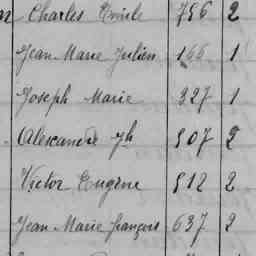 Charles Emile 756 2
Jean Marie Julien 166 1
Joseph Marie 327 1
Alexandre Jh 507 2
Victor Eugène 512 2
Jean-Marie françois 637 2